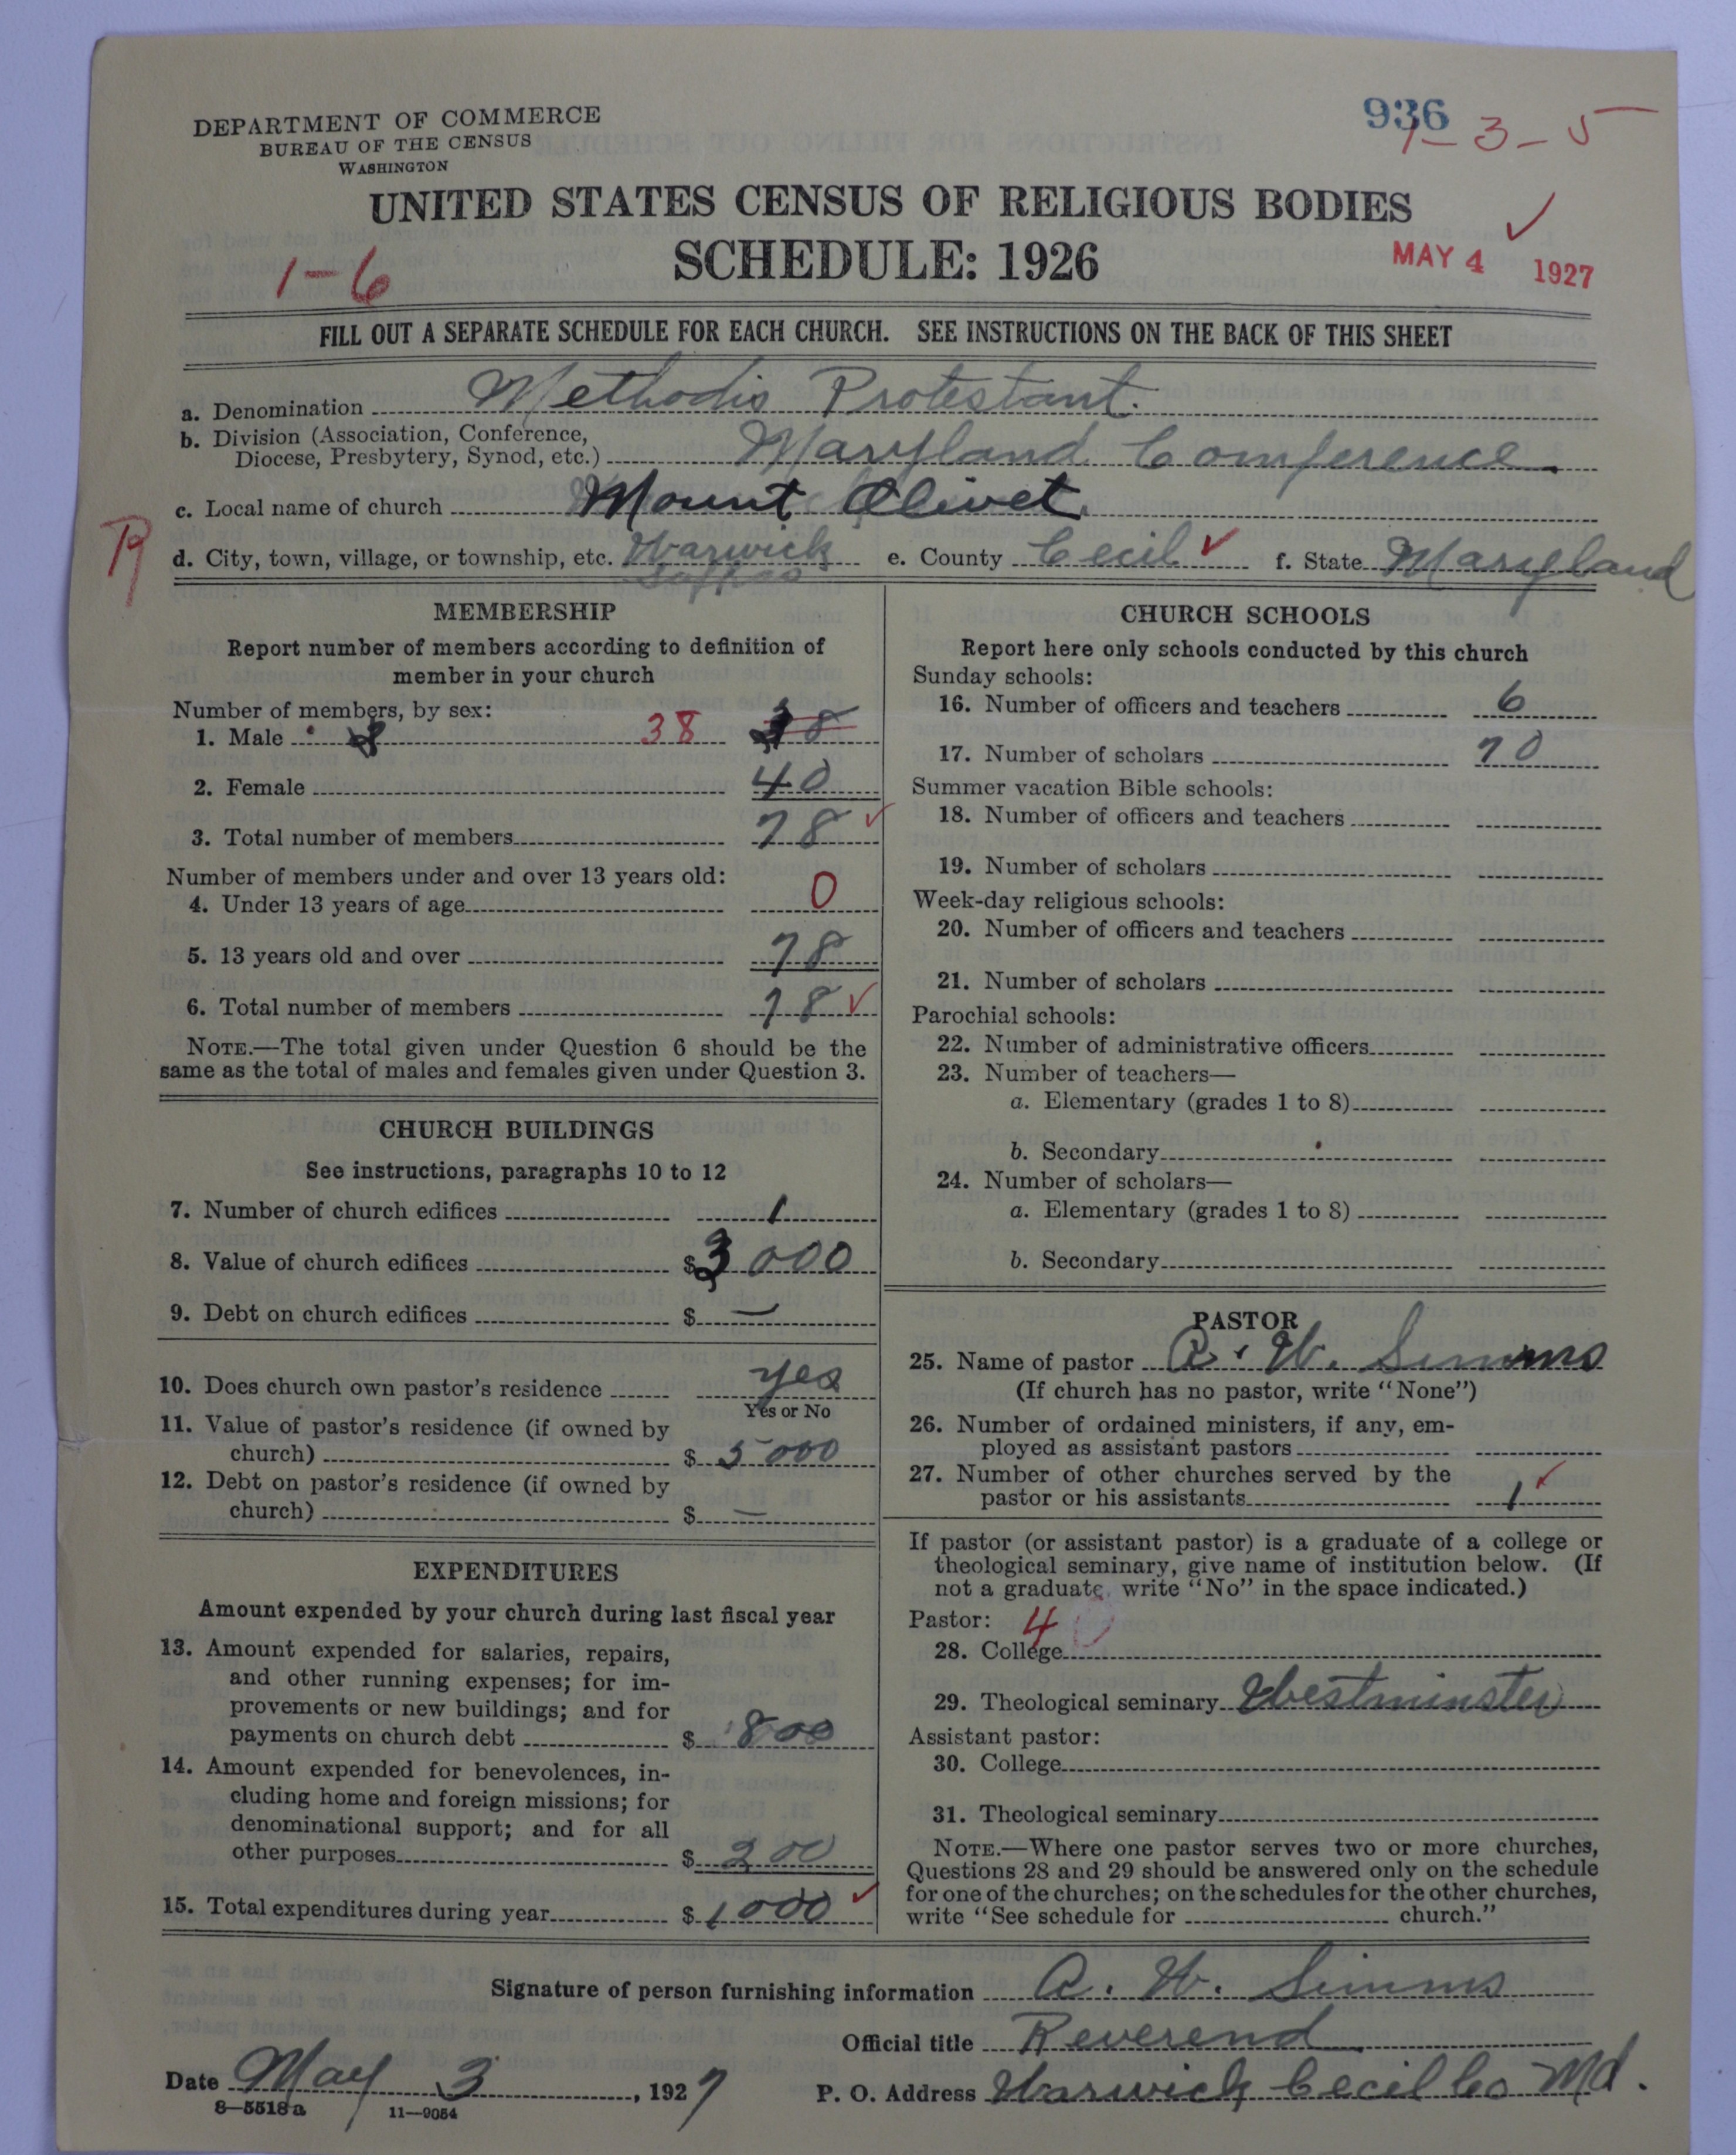 DEPARTMENT OF COMMERCE
BUREAU OF THE CENSUS
WASHINGTON
936
1-3-5
UNITED STATES CENSUS OF RELIGIOUS BODIES
SCHEDULE: 1926
1-6
MAY 4 1927
FILL OUT A SEPARATE SCHEDULE FOR EACH CHURCH. SEE INSTRUCTIONS ON THE BACK OF THIS SHEET
a. Denomination Methodis Protestant.
b. Division (Association, Conference,
Diocese, Presbytery, Synod, etc.) Maryland Conference.
c. Local name of church Mount Olivet
d. City, town, village, or township, etc. Warwick e. County Cecil f. State Maryland
MEMBERSHIP
Report number of members according to definition of
member in your church
Number of members, by sex:
1. Male 38 38
2. Female 40
3. Total number of members 78
Number of members under and over 13 years old:
4. Under 13 years of age 0
5. 13 years old and over 78
6. Total number of members 78
NOTE.—The total given under Question 6 should be the
same as the total of males and females given under Question 3.
CHURCH BUILDINGS
See instructions, paragraphs 10 to 12
7. Number of church edifices 1
8. Value of church edifices $3000
9. Debt on church edifices $ —
10. Does church own pastor's residence yes
Yes or No
11. Value of pastor's residence (if owned by
church) $ 5000
12. Debt on pastor's residence (if owned by
church) $ —
EXPENDITURES
Amount expended by your church during last fiscal year
13. Amount expended for salaries, repairs,
and other running expenses; for im-
provements or new buildings; and for
payments on church debt $ 800
14. Amount expended for benevolences, in-
cluding home and foreign missions; for
denominational support; and for all
other purposes $ 200
15. Total expenditures during year $ 1000
CHURCH SCHOOLS
Report here only schools conducted by this church
Sunday schools:
16. Number of officers and teachers 6
17. Number of scholars 70
Summer vacation Bible schools:
18. Number of officers and teachers
19. Number of scholars
Week-day religious schools:
20. Number of officers and teachers
21. Number of scholars
Parochial schools:
22. Number of administrative officers
23. Number of teachers—
a. Elementary (grades 1 to 8)
b. Secondary
24. Number of scholars—
a. Elementary (grades 1 to 8)
b. Secondary
PASTOR
25. Name of pastor A. W. Simms
(If church has no pastor, write "None")
26. Number of ordained ministers, if any, em-
ployed as assistant pastors
27. Number of other churches served by the
pastor or his assistants 1
If pastor (or assistant pastor) is a graduate of a college or
theological seminary, give name of institution below. (If
not a graduate, write "No" in the space indicated.)
Pastor: 4
28. College
29. Theological seminary Westminster
Assistant pastor:
30. College
31. Theological seminary
NOTE.—Where one pastor serves two or more churches,
Questions 28 and 29 should be answered only on the schedule
for one of the churches; on the schedules for the other churches,
write "See schedule for church."
Signature of person furnishing information A. W. Simms
Official title Reverend
Date May 3, 1927 P. O. Address Warwick Cecil Co Md.
8—5518 a 11—9054